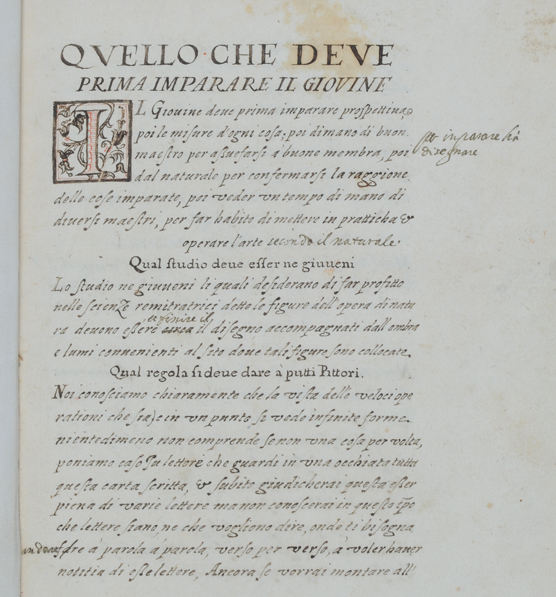 QVELLO·CHE DEVE
PRIMA IMPARARE IL GIOVINE
IL Giovine deve prima imparare prospettiva,
poi le misure d'ogni cosa; poi di mano di buon
maestro per assuefarsi à buone membra, poi
dal naturale per confermarsi la raggione
delle cose imparate, poi veder un tempo di mano di
diversi maestri, per far habito di mettere in pratticha &
operare l'arte secondo il naturale
imparare
disegnare
Qual studio deue esser ne giuueni
Lo studio ne giuueni li quali desiderano di far profitto
nelle scienze remitratrici dette le figure dell opera di natu
ra deueno essere circa il disegno accompagnati dall ombra
e lumi conuenienti al sito doue tali figure sono collocate.
Qual regola si deue dare à putti Pittori.
Noi conosciamo chiaramente che la vista delle veloci ope
rationi che sia, e in un punto si vede infinite forme
nientedimeno non comprende se non una cosa per volta,
poniamo caso Tu lettore che guardi in una occhiata tutta
questa carta scritta, & subito giudicherai questa esser
piena di varie lettere ma non conoscerai in questo tpo
che lettere siano, ne che vogliono dire, onde ti bisogna
fare à parola à parola, verso per verso, à voler hauer
notitia di esse lettere, Ancora se vorrai montare all'